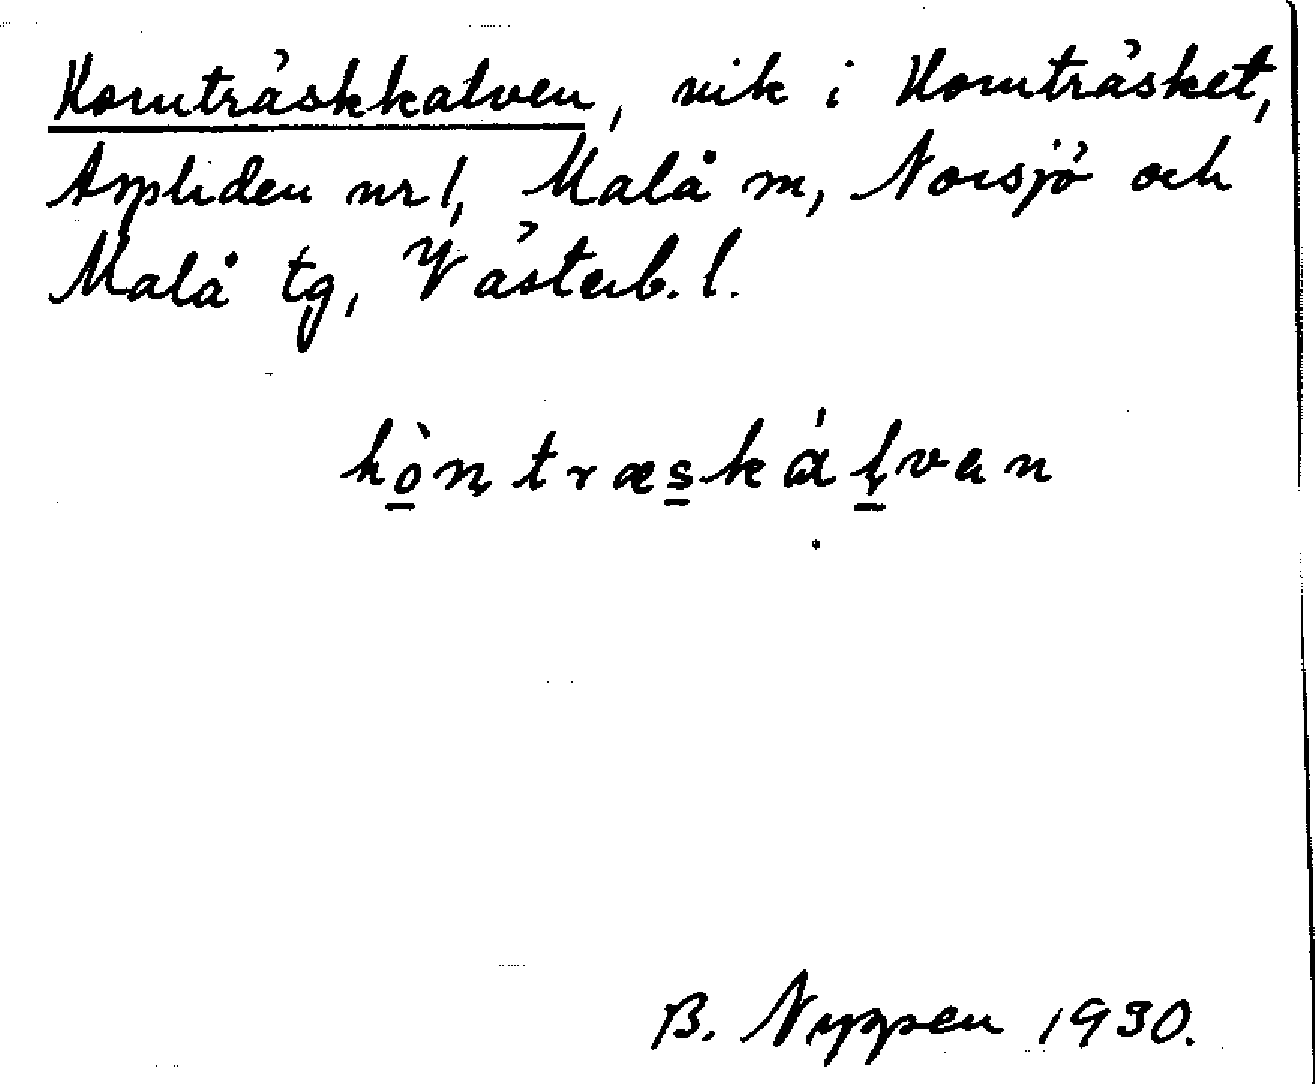 Kornträskkalven, vik i Kornträsket,
Aspliden nr 1, Malå sn, Norsjö och
Malå tg, Västerb. l.
kòṇtræskáḷvan
B. Nyppen 1930.